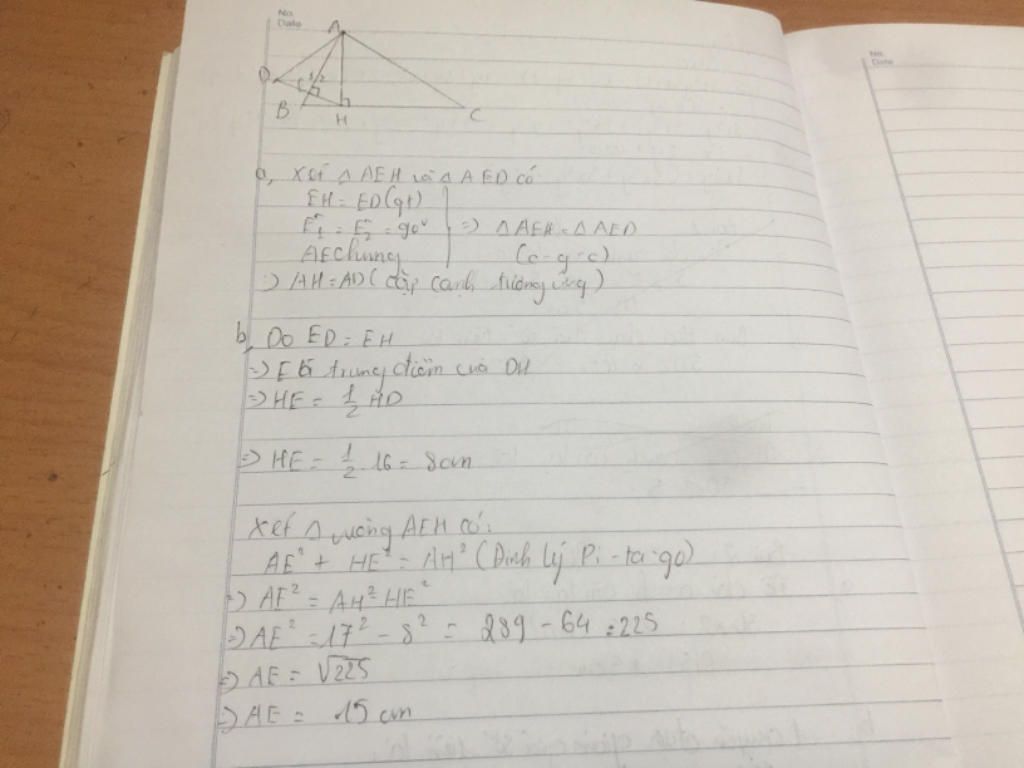 No.
Date
No.
Date
A
D
E 1 2
B
H
C
a, Xét Δ AEH và Δ AED có
EH = ED (gt)
Ê1 = Ê2 = 90° => Δ AEH = Δ AED
AE chung (c-g-c)
=> AH = AD (cặp cạnh tương ứng)
b, Do ED = EH
=> E là trung điểm của DH
=> HE = 1/2 HD
=> HE = 1/2 .16 = 8cm
Xét Δ vuông AEH có:
AE² + HE² = AH² (Định lý Pi-ta-go)
=> AE² = AH² - HE²
=> AE² = 17² - 8² = 289 - 64 = 225
=> AE = √225
=> AE = 15 cm